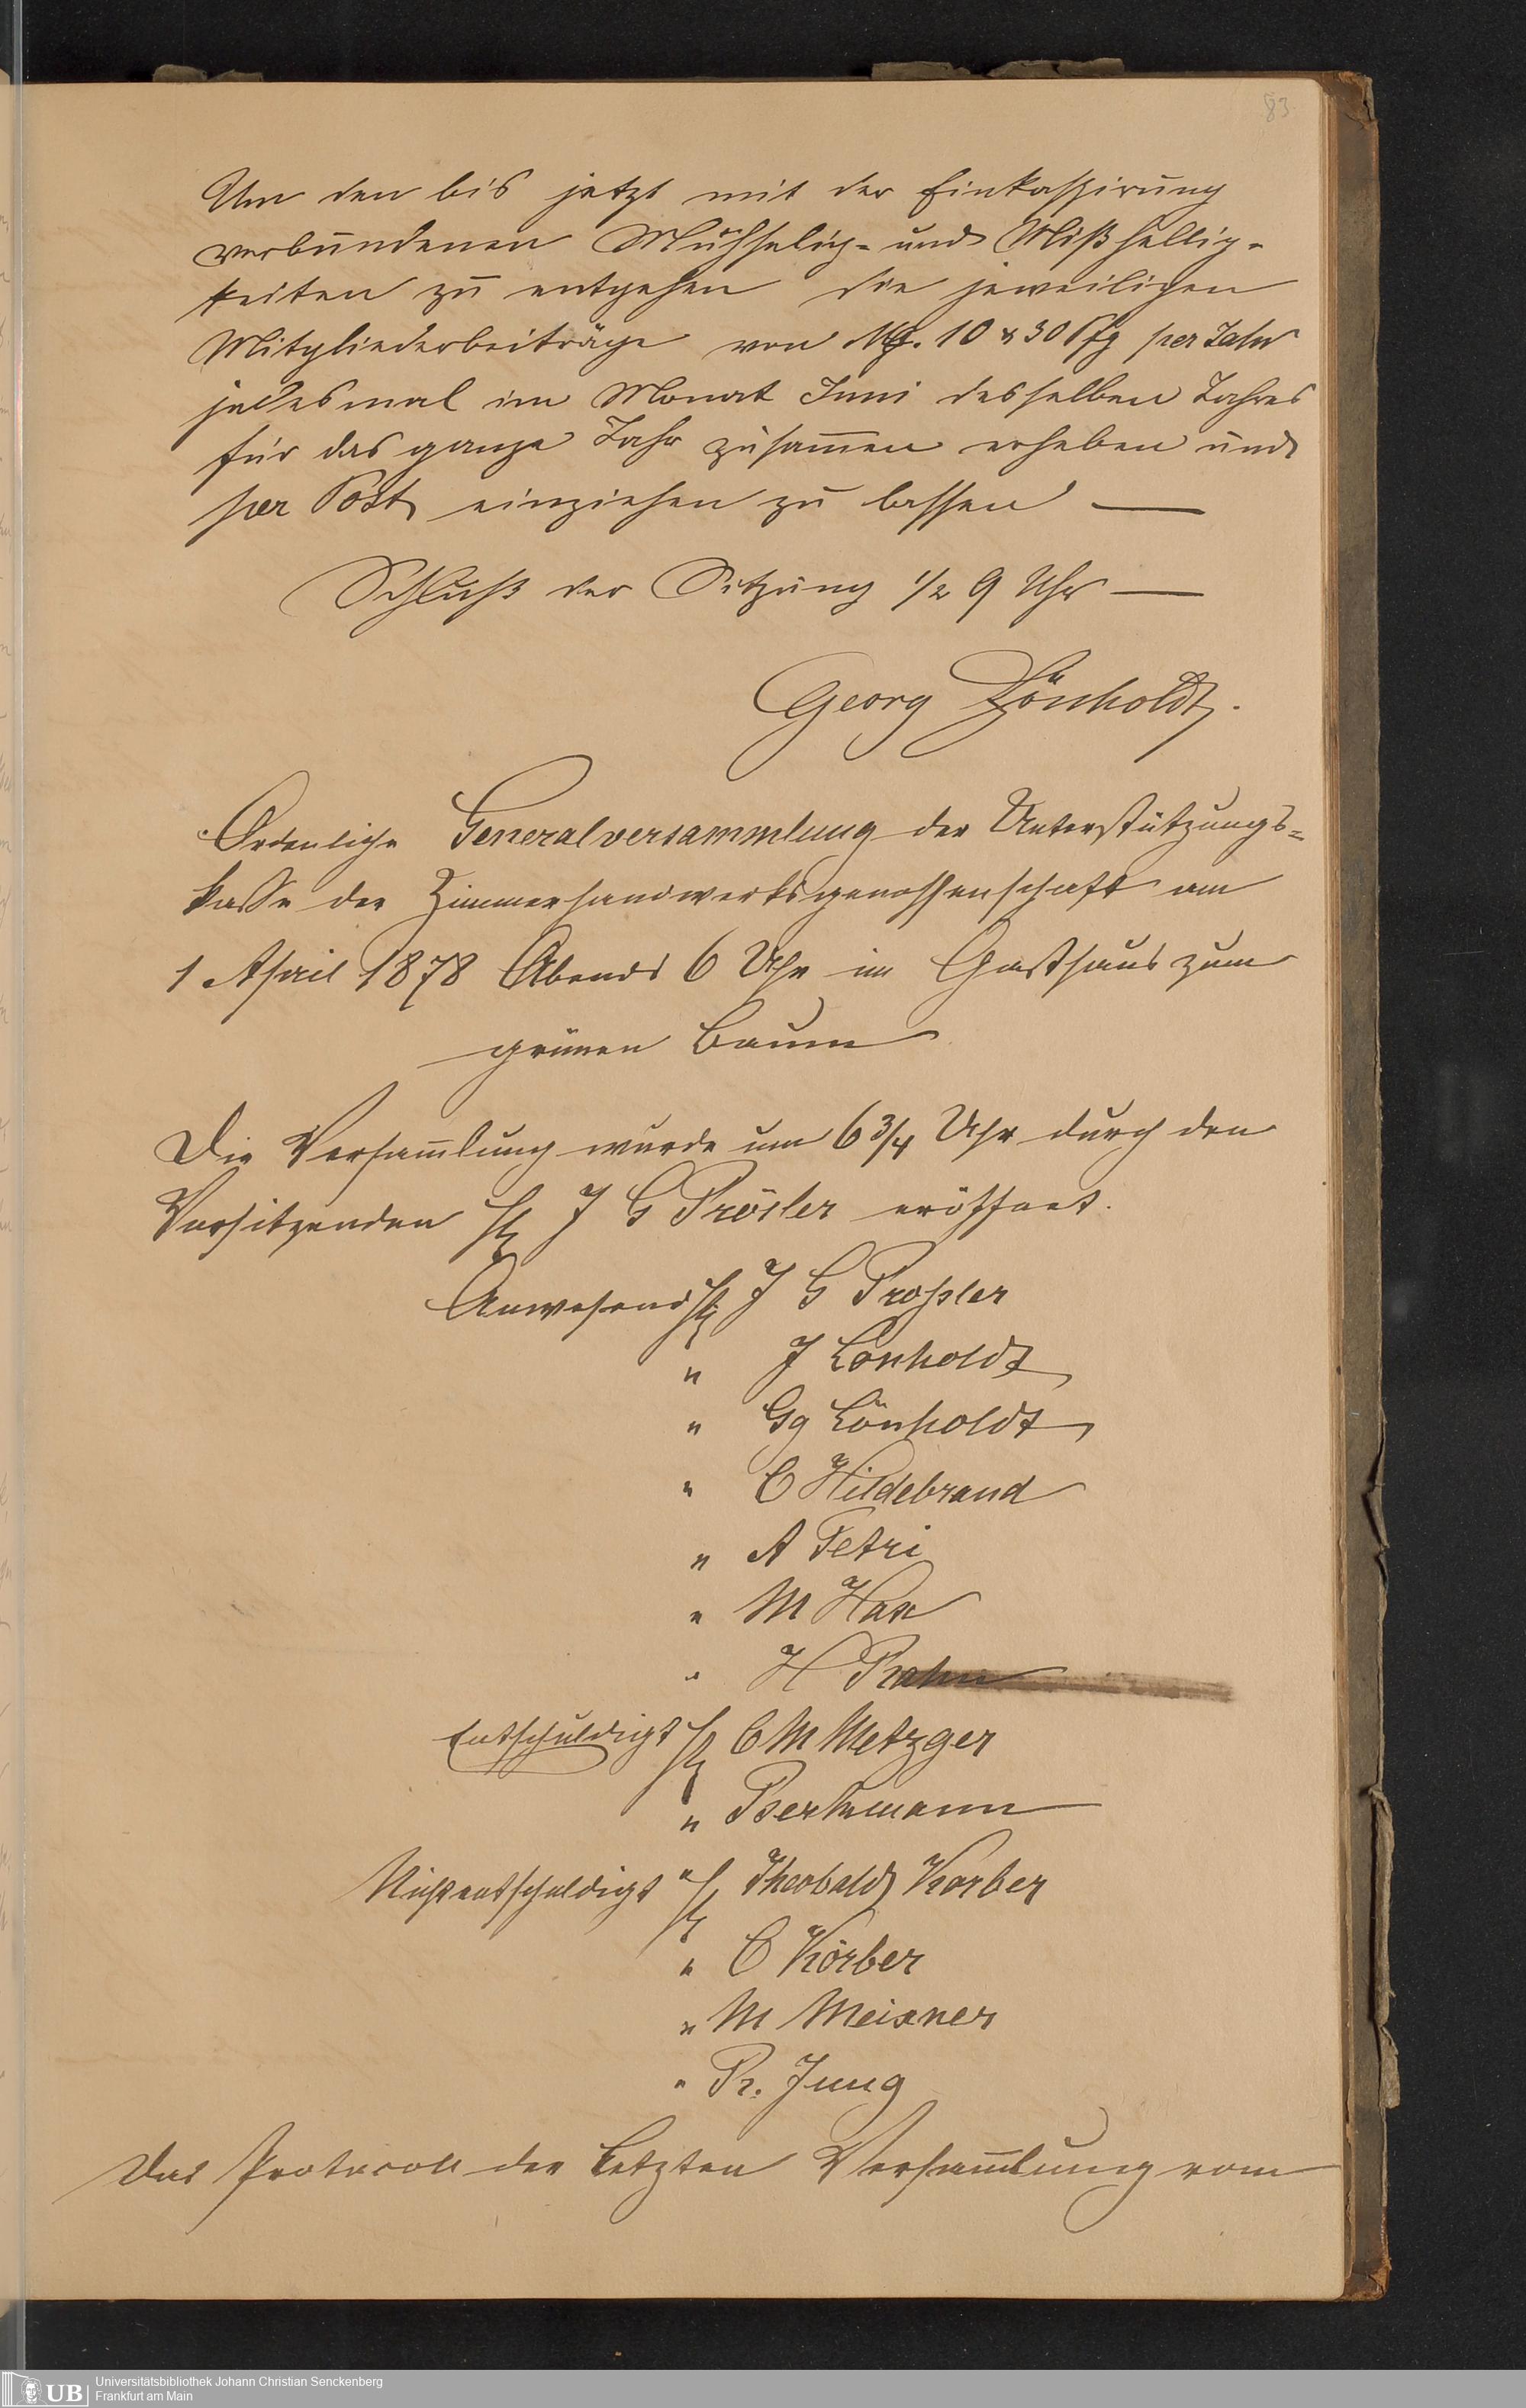 83
Um den bis jetzt mit der Einkassirung
verbundenen Mühselig- und Mißhellig-
keiten zu entgehen die jeweiligen
Mitgliederbeiträge von M. 10 & 30 Pfg per Jahr
jedesmal im Monat Juni desselben Jahres
für das ganze Jahr zusam̄en erheben und
per Post einziehen zu lassen —
Schluß der Sitzung 1/2 9 Uhr —
Georg Lönholdt.
Ordenliche Generalversammlung der Unterstützungs=
kasse der Zimmerhandwerksgenossenschaft am
1 April 1878 Abends 6 Uhr im Gasthaus zum
grünen Baum
Die Versam̄lung wurde um 6 3/4 Uhr durch den
Vorsitzenden H J G Prösler eröffnet.
Anwesend H J G Prossler
" J Lönholdt
" Gg Lönholdt
" C Hildebrand
" A Petri
" M Hax
" H Prahn
Entschuldigt H C M Metzger
" Berkmann
Nichtentschuldigt " H Theobald Körber
" C Körber
" M Meixner
" Pr. Jung
Das Protocoll der letzten Versam̄lung vom
Universitätsbibliothek Johann Christian Senckenberg
Frankfurt am Main
UB